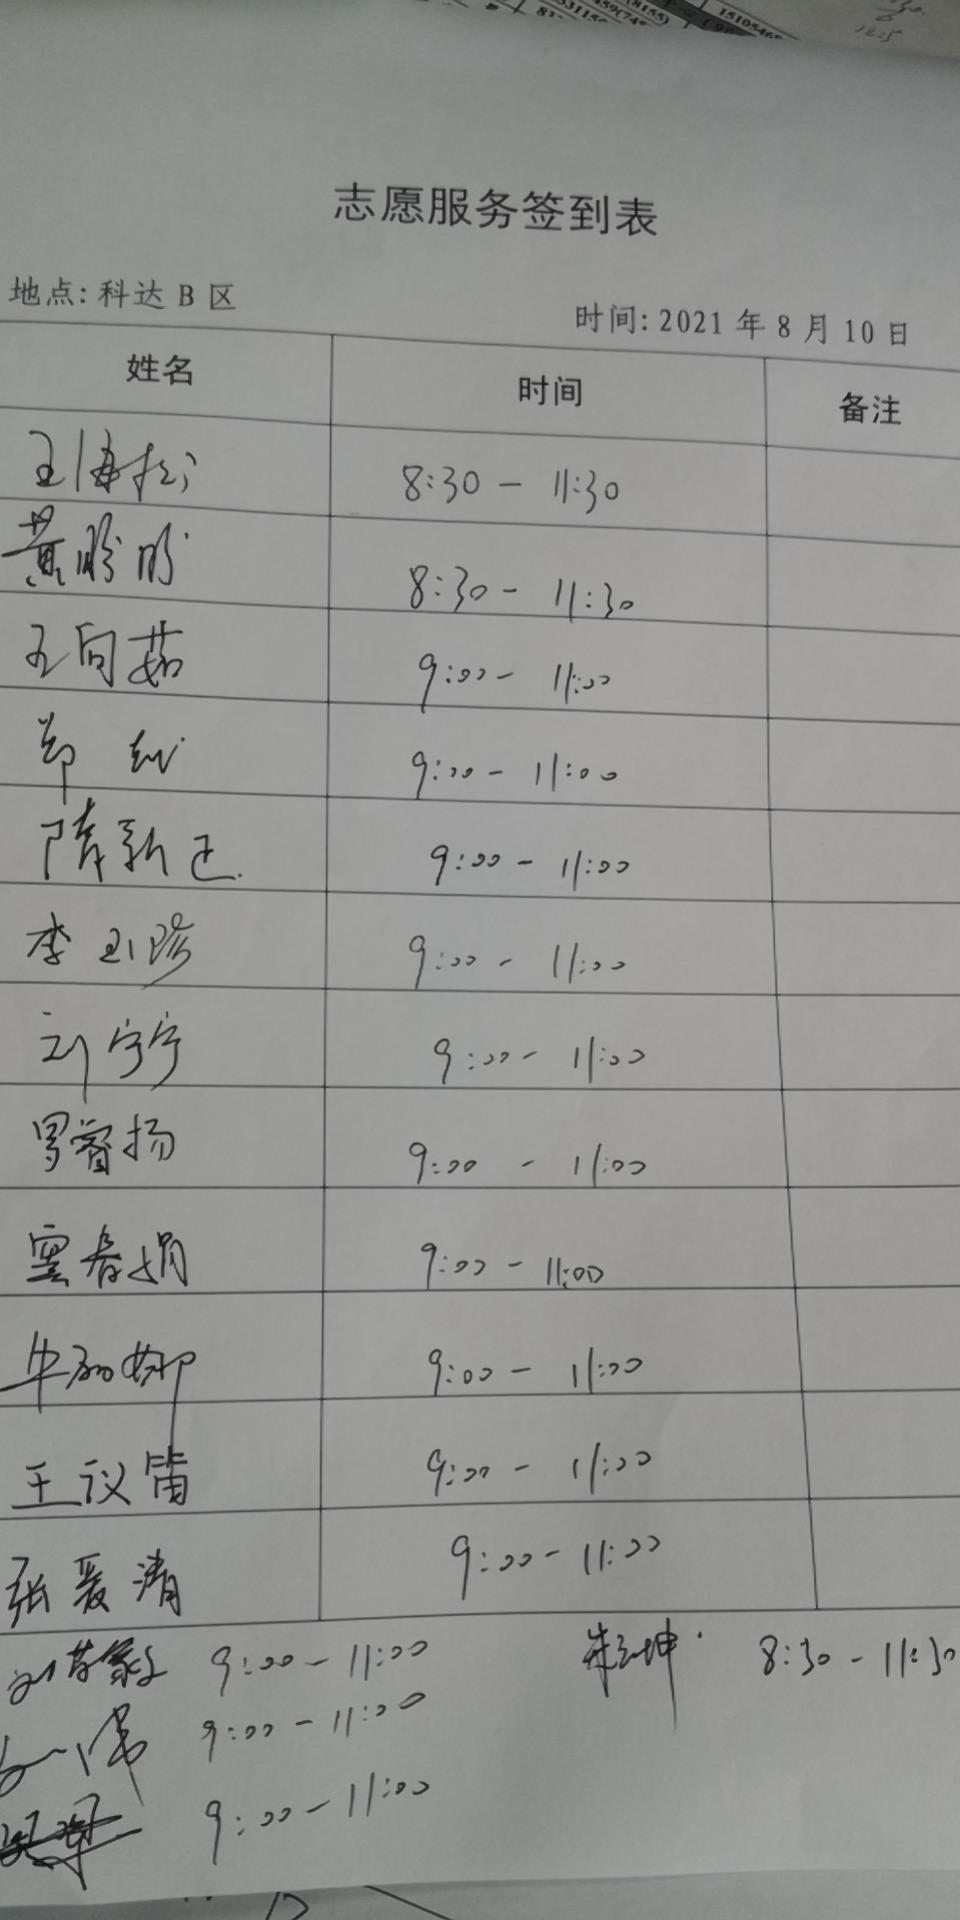 志愿服务签到表
地点: 科达 B 区
时间: 2021 年 8 月 10 日
姓名 时间 备注
王海松 8:30 - 11:30
黄盼盼 8:30 - 11:30
王向茹 9:00 - 11:00
郑 9:00 - 11:00
隋新 9:00 - 11:00
李玉珍 9:00 - 11:00
刘宁宁 9:00 - 11:00
罗睿扬 9:00 - 11:00
窦春娟 9:00 - 11:00
牛丽娜 9:00 - 11:00
王议笛 9:00 - 11:00
张爱清 9:00 - 11:00
9:00 - 11:00 坤 8:30 - 11:30
9:00 - 11:00
9:00 - 11:00